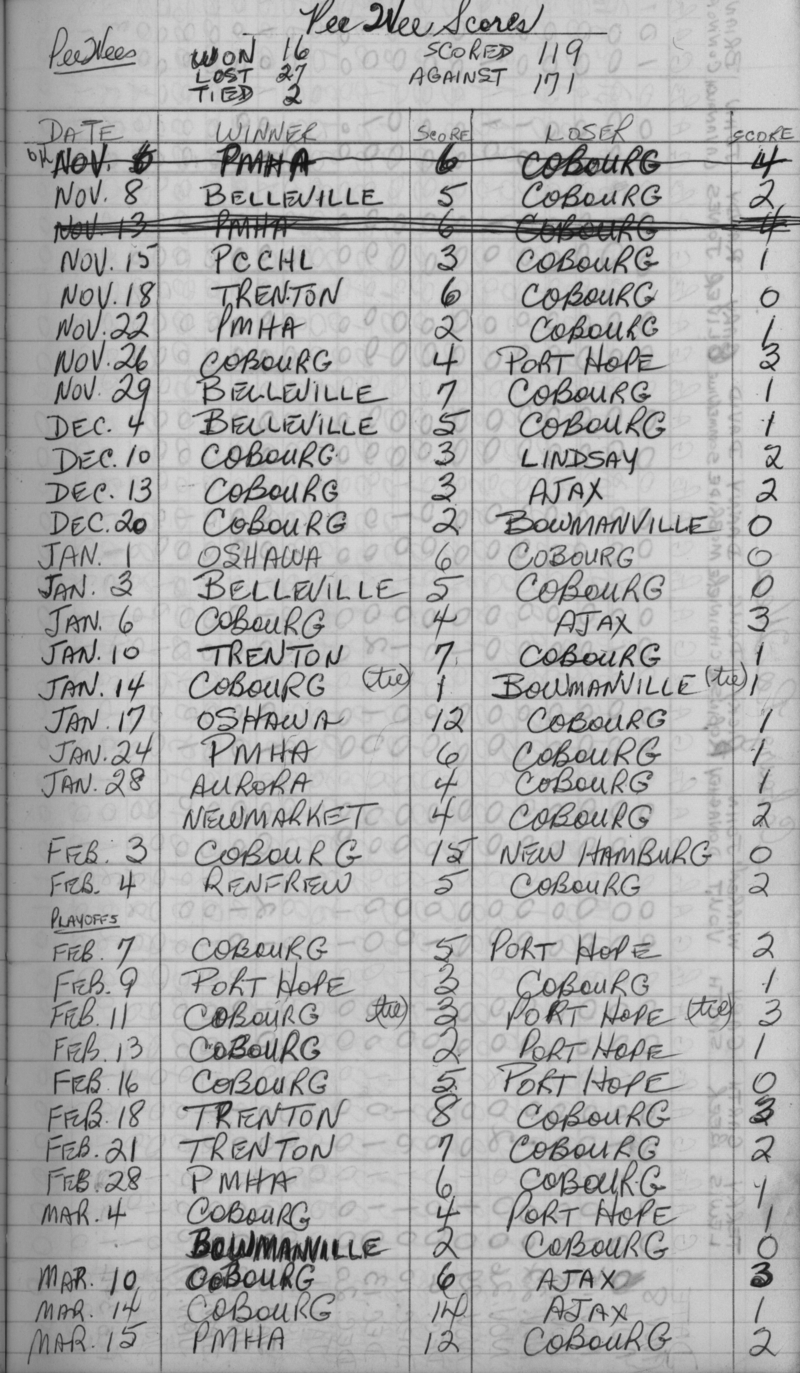 Pee Wee Scores
PeeWees
WON 16 SCORED 119
LOST 27 AGAINST 171
TIED 2
DATE WINNER SCORE LOSER SCORE
NOV. 6 PMHA 6 COBOURG 4
NOV. 8 BELLEVILLE 5 COBOURG 2
NOV. 13 PMHA 6 COBOURG 4
NOV. 15 PCCHL 3 COBOURG 1
NOV. 18 TRENTON 6 COBOURG 0
NOV. 22 PMHA 2 COBOURG 1
NOV. 26 COBOURG 4 PORT HOPE 3
NOV. 29 BELLEVILLE 7 COBOURG 1
DEC. 4 BELLEVILLE 5 COBOURG 1
DEC. 10 COBOURG 3 LINDSAY 2
DEC. 13 COBOURG 3 AJAX 2
DEC. 20 COBOURG 2 BOWMANVILLE 0
JAN. 1 OSHAWA 6 COBOURG 0
JAN. 3 BELLEVILLE 5 COBOURG 0
JAN. 6 COBOURG 4 AJAX 3
JAN. 10 TRENTON 7 COBOURG 1
JAN. 14 COBOURG (tie) 1 BOWMANVILLE (tie) 1
JAN. 17 OSHAWA 12 COBOURG 1
JAN. 24 PMHA 6 COBOURG 1
JAN. 28 AURORA 4 COBOURG 1
NEWMARKET 4 COBOURG 2
FEB. 3 COBOURG 15 NEW HAMBURG 0
FEB. 4 RENFREW 5 COBOURG 2
PLAYOFFS
FEB. 7 COBOURG 5 PORT HOPE 2
FEB. 9 PORT HOPE 3 COBOURG 1
FEB. 11 COBOURG (tie) 3 PORT HOPE (tie) 3
FEB. 13 COBOURG 2 PORT HOPE 1
FEB. 16 COBOURG 5 PORT HOPE 0
FEB. 18 TRENTON 8 COBOURG 3
FEB. 21 TRENTON 7 COBOURG 2
FEB. 28 PMHA 6 COBOURG 1
MAR. 4 COBOURG 4 PORT HOPE 1
BOWMANVILLE 2 COBOURG 0
MAR. 10 COBOURG 6 AJAX 3
MAR. 14 COBOURG 14 AJAX 1
MAR. 15 PMHA 12 COBOURG 2